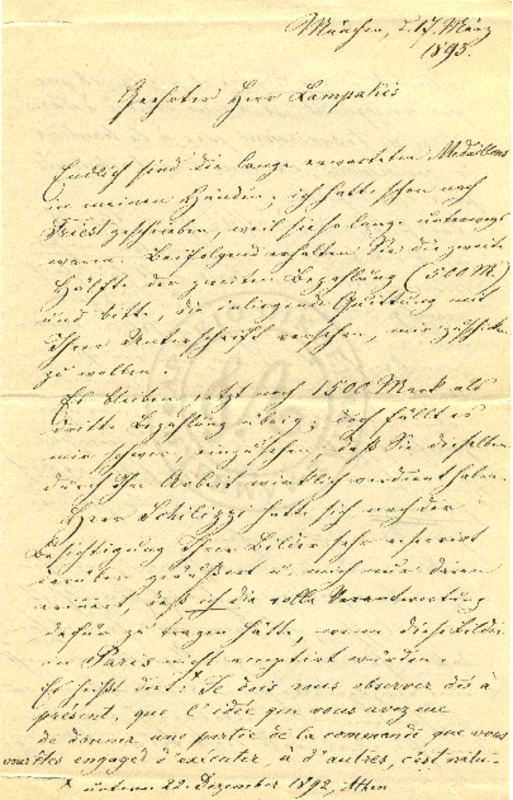 München, d. 17. März
1893.
Geehrter Herr Lampakis
Endlich sind die lange erwarteten Medaillons
in meinen Händen; ich hatte schon nach
Triest geschrieben, weil sie so lange unterwegs
waren. Beifolgend erhalten Sie die zweite
Hälfte der zweiten Bezahlung (500 M.)
und bitte, die inliegende Quittung mit
Ihrer Unterschrift versehen, mir zuschicken
zu wollen.
Es bleiben jetzt noch 1500 Mark als
dritte Bezahlung übrig; doch fällt es
mir schwer einzusehen, daß Sie dieselben
durch Ihre Arbeit wirklich verdient haben.
Herr Schilizzi hatte sich nach der
Besichtigung Ihrer Bilder sehr reservirt
darüber geäußert u. mich nur daran
erinnert, daß ich die volle Verantwortung
dafür zu tragen hätte, wenn diese Bilder
in Paris nicht acceptirt würden.
Es heißt dort: * Je dois vous observer dès à
présent, que l'idée que vous avez eue
de donner une partie de la commande que vous
vous êtes engagé d'exécuter, à d'autres, c'est natu-
* unterm 22. Dezember 1892, Athen